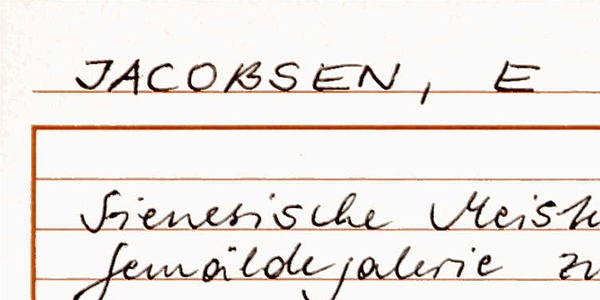 JACOBSEN, E
Sienesische Meist
Gemäldegalerie zu